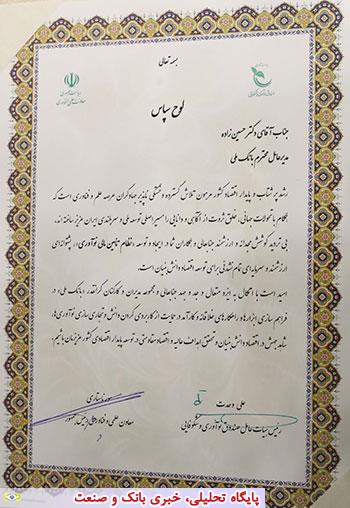 بسمه تعالی
ریاست جمهوری
معاونت علمی و فناوری
لوح سپاس
جناب آقای دکتر حسین زاده
مدیرعامل محترم بانک ملی
رشد پر شتاب و پایدار اقتصاد کشور مرهون تلاش گسترده و خستگی ناپذیر جهادگران عرصه علم و فناوری است که
همگام با تحولات جهانی، خلق ثروت از آگاهی و دانایی را مسیر اصلی توسعه ملی و سربلندی ایران عزیز ساخته اند.
بی تردید کوشش مجدانه و ارزشمند جنابعالی و همکاران شما در ایجاد و توسعه «نظام تامین مالی نوآوری»، پشتوانه ای
ارزشمند و سرمایه ای تمام نشدنی برای توسعه اقتصاد دانش بنیان است.
امید است با اتکال به ایزد متعال و جد و جهد جنابعالی و مجموعه مدیران و کارکنان گرانقدر «بانک ملی» در
فراهم سازی ابزارها و راهکارهای خلاقانه و کارآمد در حمایت از کاربردی کردن دانش و تجاری سازی نوآوری ها،
شاهد جهش در اقتصاد دانش بنیان و تحقق اهداف عالیه و اقتصاد مقاومتی در توسعه پایدار اقتصادی کشور عزیزمان باشیم.
علی وحدت
رئیس هیات عامل صندوق نوآوری و شکوفایی
سورنا ستاری
معاون علمی و فناوری رئیس جمهور
پایگاه تحلیلی، خبری بانک و صنعت